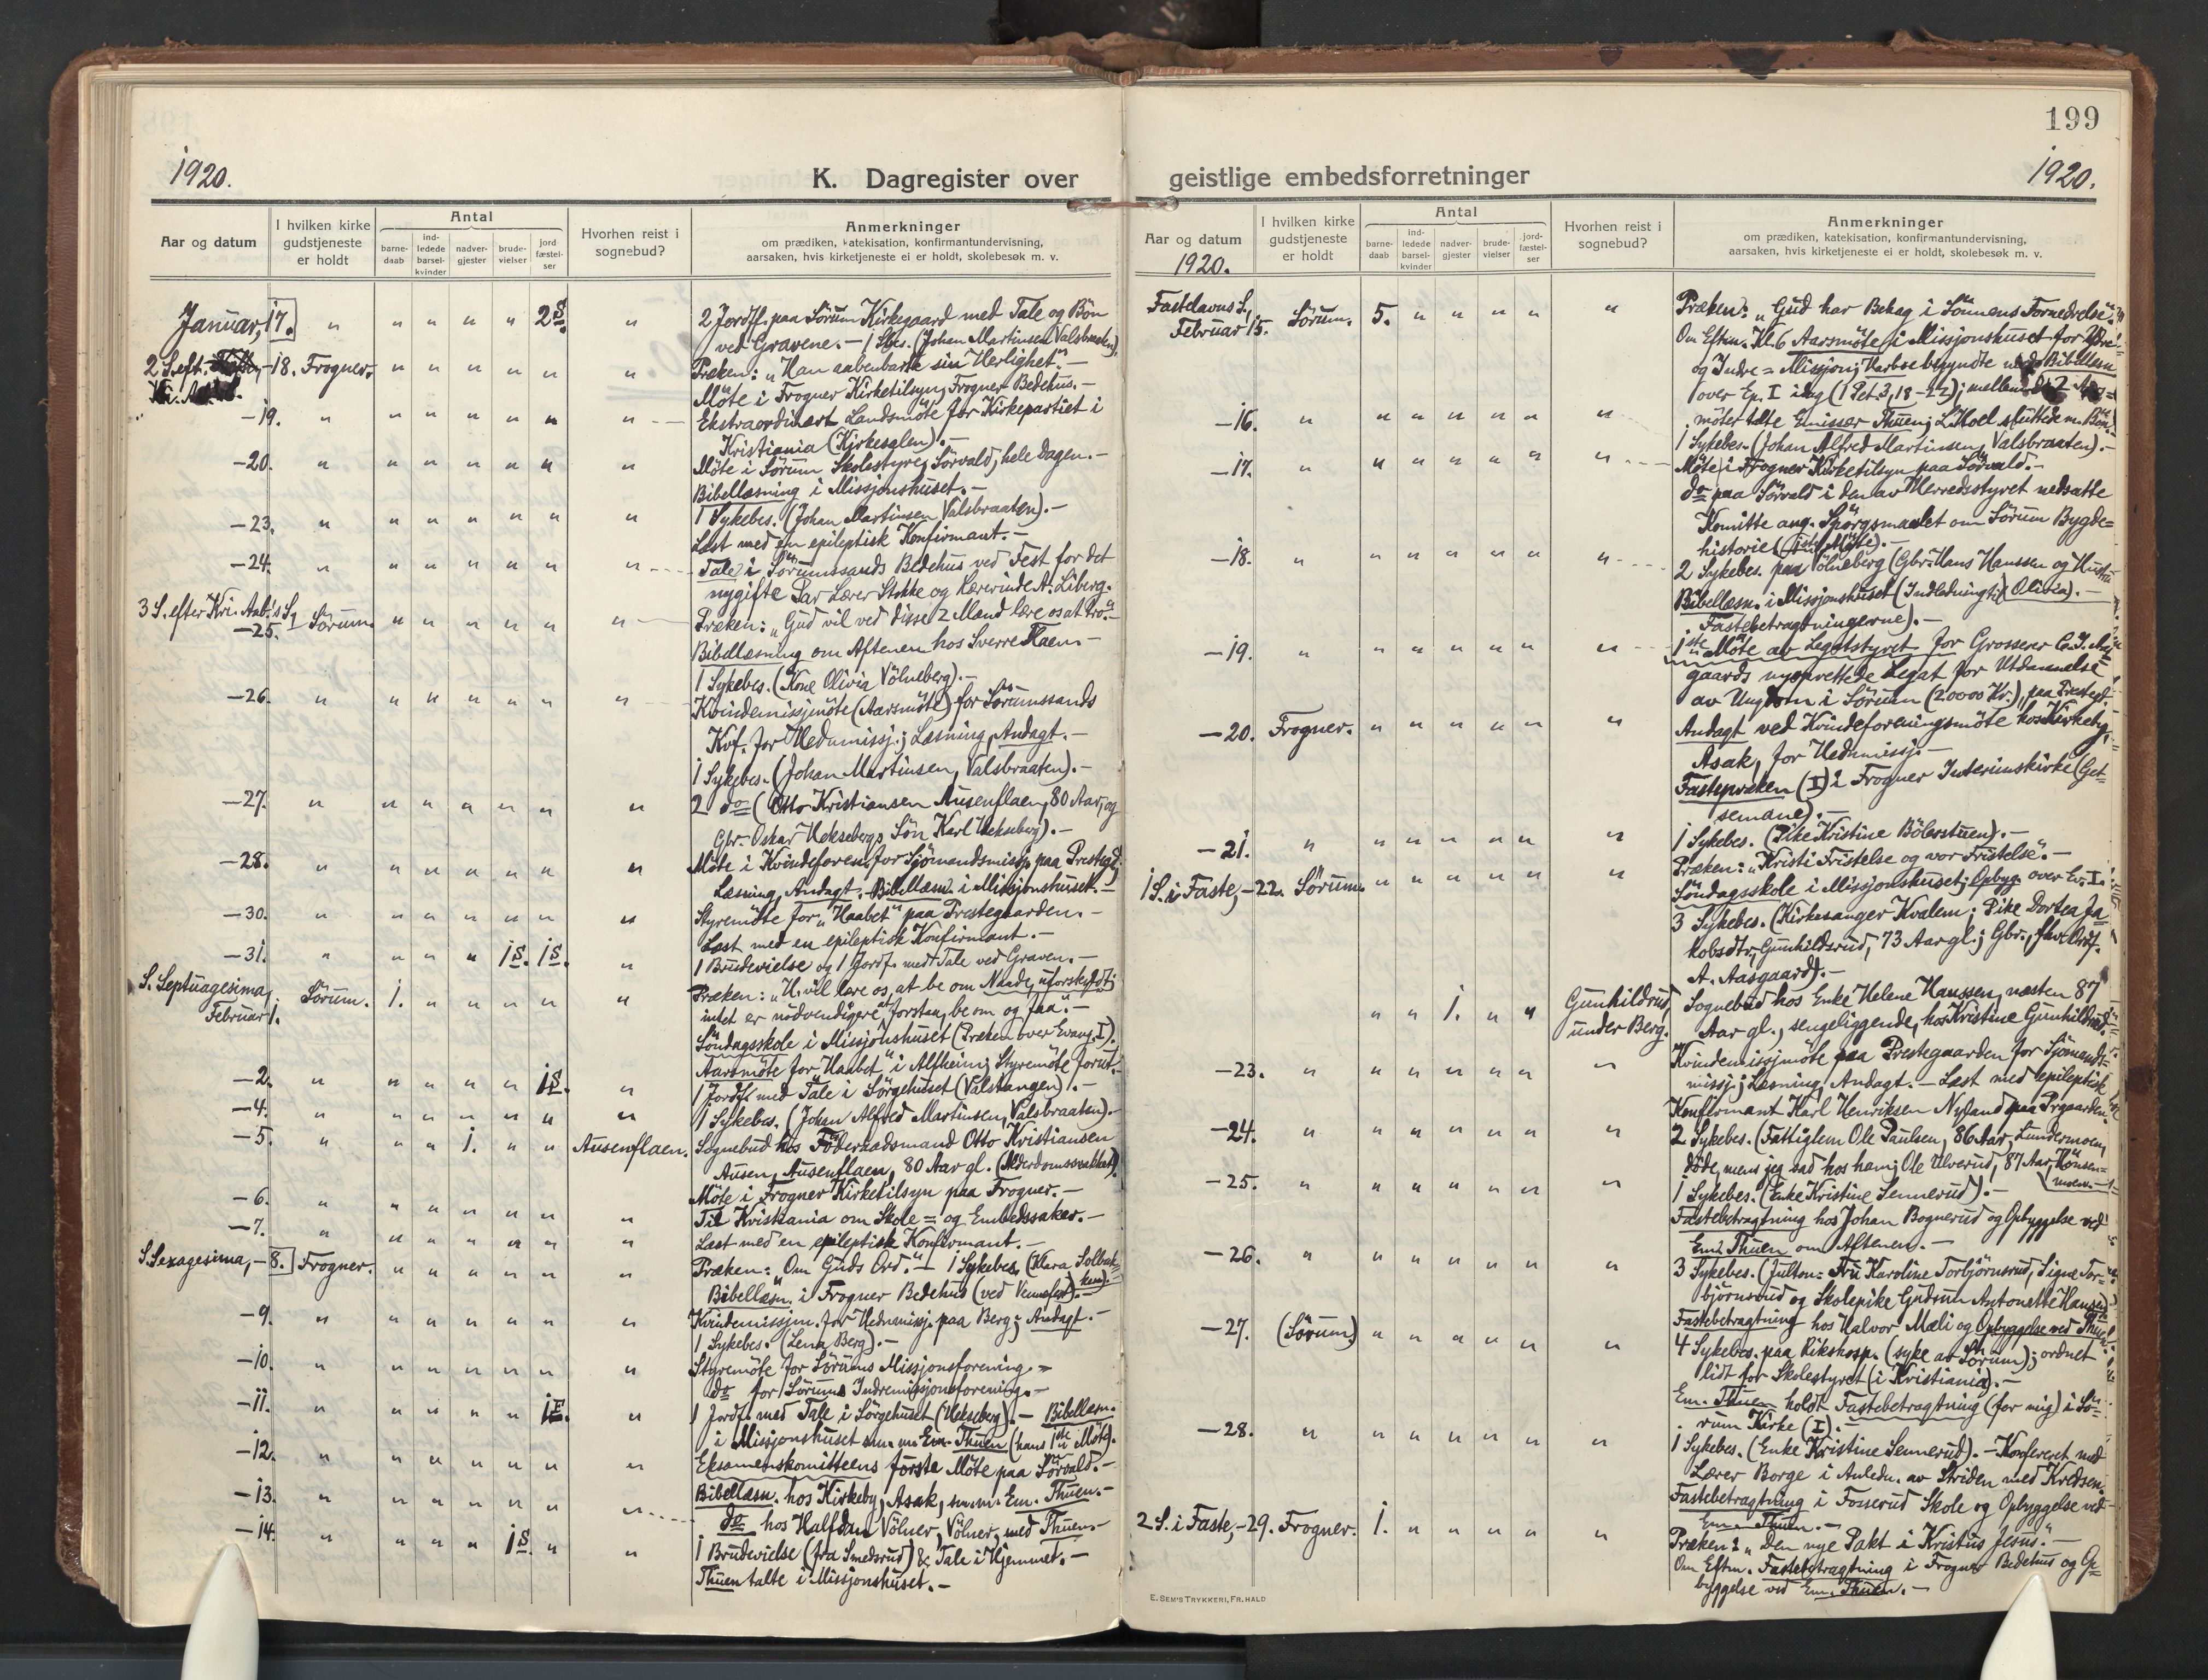 199
1920.
K. Dagregister over
geistlige embedsforretninger
1920.
Aar og datum
I hvilken kirke gudstjeneste er holdt
Antal
barne-daab
ind-ledede barsel-kvinder
nadver-gjester
brude-vielser
jord-fæstel-ser
Hvorhen reist i sognebud?
Anmerkninger
om prædiken, katekisation, konfirmantundervisning,
aarsaken, hvis kirketjeneste ei er holdt, skolebesøk m. v.
Januar, 17. " " " " " 2 S. " 2 Jordf. paa Sörum Kirkegaard med Tale og Bön
ved Gravene. – 1 Skes. (Johan Martinsen Valsbraaten).
2 S. eft. –18. Frogner. " " " " " " Præken: „Han aabenbarte sin Herlighet". –
Möte i Frogner Kirketilsyn, Frogner Bedehus. –
–19. " " " " " " " Ekstraordinært Landsmöte for Kirkepartiet i
Kristiania (Kirkesalen). –
–20. " " " " " " " Möte i Sörum Skolestyre, Sörvald, hele dagen. –
Bibellæsning i Missjonshuset. –
1 Sykebes. (Johan Martinsen Valsbraaten). –
–23. " " " " " " " Læst med en epileptisk Konfirmant. –
–24. " " " " " " " Tale i Sörumssands Bedehus ved Fest for det
nygifte Par Lærer Stokke og Lærerinde A. Liberg. –
3 S. efter Kri. Aab.'s S.,
–25. Sörum. " " " " " " Præken: „Gud vil ved disse 2 Mænd lære os at tro". –
Bibellæsning om Aftenen hos Sverre Kaen. –
1 Sykebes. (Kone Olivia Völneberg). –
–26. " " " " " " " Kvindemissjmöte (Aarsmöte) for Sörumssands
Kvf. for Hednmissj.; Læsning, Andagt. –
1 Sykebes. (Johan Martinsen, Valsbraaten). –
–27. " " " " " " " 2 do (Otto Kristiansen Ausenflaen, 80 Aar, og
Gbr. Oskar Hekseberg's Sön Karl Hekseberg). –
–28. " " " " " " " Möte i Kvindeforen. for Sjömandsmissj. paa Prestegd.;
Læsning, Andagt. Bibellæsn. i Missjonshuset. –
–30. " " " " " " " Styremöte for „Haabet" paa Prestegaarden. –
Læst med en epileptisk Konfirmant. –
–31. " " " " 1 S. 1 S. " 1 Brudevielse og 1 Jordf. med Tale ved Graven. –
S. Septuagesima,
Februar 1. Sörum. 1. " " " " " Præken: „H. vil lære os, at be om Naade, uforskyldt;
intet er nödvendigere at forstaa, be om og faa". –
Söndagsskole i Missjonshuset (Præken over Evang. I).
Aarsmöte for „Haabet" i Alfheim; Styremöte forut. –
–2. " " " " " 1 S. " 1 Jordf. med Tale i Sörgehuset (Valstangen). –
–4. " " " " " " " 1 Sykebes. (Johan Alfred Martinsen, Valsbraaten). –
–5. " " " 1. " " Ausenflaen. Sognebud hos Föderaadsmand Otto Kristiansen
Ausen, Ausenflaen, 80 Aar gl. (Alderdomssvakhet).
Möte i Frogner Kirketilsyn paa Frogner. –
–6. " " " " " " " Til Kristiania om Skole = og Embedssaker. –
–7. " " " " " " " Læst med en epileptisk Konfirmant. –
S. Sexagesima, –8. Frogner. " " " " " " Præken: Om Guds Ord". – 1 Sykebes. (Klara Solbak-
Bibellæsn. i Frogner Bedehus (ved Vennefest). – ken). –
–9. " " " " " " " Kvindemissjm. for Hednmissj. paa Berg; Andagt. –
1 Sykebes. (Lena Berg). –
–10. " " " " " " " Styremöte for Sörums Missjonsforening. =
do for Sörums Indremissjonsforening. –
–11. " " " " " 1 F. " 1 Jordf. med Tale i Sörgehuset (Hekseberg). – Bibellæsn.
i Missjonshuset sm. m. Em. Thuen (hans 1ste Möte).
–12. " " " " " " " Eksamenskomitteens förste Möte paa Sörvald. –
–13. " " " " " " " Bibellæsn. hos Kirkeby, Asak, sm. m. Em. Thuen. –
do hos Halfdan Völner, Völner, med Thuen. –
–14. " " " " 1 S. " " 1 Brudevielse (fra Smedsrud) & Tale i Hjemmet. –
Thuen talte i Missjonshuset. –
Aar og datum
1920.
I hvilken kirke gudstjeneste er holdt
Antal
barne-daab
ind-ledede barsel-kvinder
nadver-gjester
brude-vielser
jord-fæstel-ser
Hvorhen reist i sognebud?
Anmerkninger
om prædiken, katekisation, konfirmantundervisning,
aarsaken, hvis kirketjeneste ei er holdt, skolebesøk m. v.
Fastelavns S.,
Februar 15. Sörum. 5. " " " " " Præken: „Gud har Behag i Sönnens Fornedrelse".
Om Eftm. Kl. 6 Aarsmöte i Missjonshuset for Ytre=
og Indre = Missjon; Harboe begyndte med Bibellæsn.
over Ep. I idag (1 Pet. 3, 18–22); mellem de 2 Aars=
möter talte Emissær Thuen; L. Moel sluttede m. Bön.
–16. " " " " " " " 1 Sykebes. (Johan Alfred Martinsen, Valsbraaten). –
–17. " " " " " " " Möte i Frogner Kirketilsyn paa Sörvald. –
do paa Sörvald i den av Herredsstyret nedsatte
Komitte ang. Spörgsmaalet om Sörum Bygde=
historie (1ste Möte). –
–18. " " " " " " " 2 Sykebes. paa Völneberg (Gbr. Hans Hanssen og Hustru
Bibellæsn. i Missjonshuset (Indledning til Olivia). –
Fastebetragtningerne). –
–19. " " " " " " " 1ste Möte av Legatstyret for Grosserer
gaards nyoprettede Legat for Utdannelse
av Ungdom i Sörum (20000 Kr.), paa Prestegd.
–20. Frogner. " " " " " " Andagt ved Kvindeforeningsmöte hos Kirkeby,
Asak, for Hednmissj. –
Fastepræken (I) i Frogner Interimskirke (Get-
semane). –
–21. " " " " " " " 1 Sykebes. (Pike Kristine Bölerstuen). –
1 S. i Faste, –22. Sörum. " " " " " " Præken: „Kristi Fristelse og vor Fristelse". –
Söndagsskole i Missjonshuset; Opbyg. over Ev. I.
3 Sykebes. (Kirkesanger Kvalem; Pike Dortea Ja-
kobsdtr. Gunhildsrud, 73 Aar gl.; Gbr., fhv. Ordf.
A. Aasgaard). –
" " 1. " " Gunhildrud, under Berg. Sognebud hos Enke Helene Hanssen, næsten 87
Aar gl., sengeliggende, hos Kristine Gunhildrud. –
–23. " " " " " " " Kvindemissjmöte paa Prestegaarden for Sjömands-
missj.; Læsning, Andagt. – Læst med epileptisk
Konfirmant Karl Henriksen Nyland paa Prgaarden.
–24. " " " " " " " 2 Sykebes. (Fattiglem Ole Paulsen, 86 Aar, Lundermoen,
döde, mens jeg sad hos ham; Ole Ulverud, 87 Aar, Hönsen=
moen. –
–25. " " " " " " " 1 Sykebes. (Enke Kristine Sennerud). –
Fastebetragtning hos Johan Bognerud og Opbyggelse ved
Em. Thuen om Aftenen. –
–26. " " " " " " " 3 Sykebes. (Julton: Fru Karoline Torbjörnsrud, Signe Tor-
björnsrud og Skolepike Gudrun Antonette Hansen)
Fastebetragtning hos Halvor Mæli og Opbyggelse ved Thuen.
–27. (Sörum) " " " " " " 4 Sykebes. paa Rikshosp. (syke av Sörum); ordnet
lidt for Skolestyret (i Kristiania). –
Em. Thuen holdt Fastebetragtning (for mig) i Sö-
rum Kirke (I). –
–28. " " " " " " " 1 Sykebes. (Enke Kristine Sennerud). – Konfereret med
Lærer Borge i Anledn. av Striden med Kredsen.
Fastebetragtning i Fosserud Skole og Opbyggelse ved
Em. Thuen. –
2 S. i Faste, –29. Frogner. 1. " " " " " Præken: „Den nye Pakt i Kristus Jesus". –
Om Eftm. Fastebetragtning i Frogner Bedehus og Op=
byggelse ved Em. Thuen. –
E. SEM'S TRYKKERI, FR. HALD